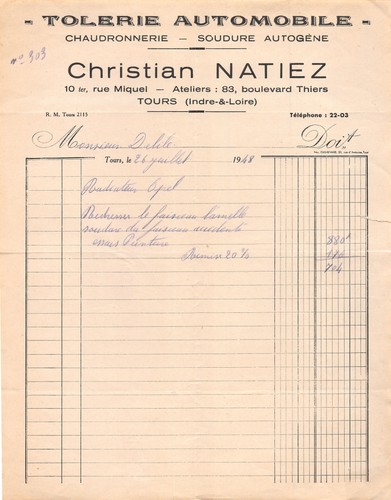 - TOLERIE AUTOMOBILE -
CHAUDRONNERIE — SOUDURE AUTOGÈNE
n° 303
Christian NATIEZ
10 ter, rue Miquel — Ateliers : 83, boulevard Thiers
TOURS (Indre-&-Loire)
R. M. Tours 2115 Téléphone : 22-03
Monsieur Doit
Tours, le 26 juillet 1948
Radiateur Opel
Redresser le faisceau lamelle
soudure du faisceau
essais Peinture 880
Remise 20 % 176
704